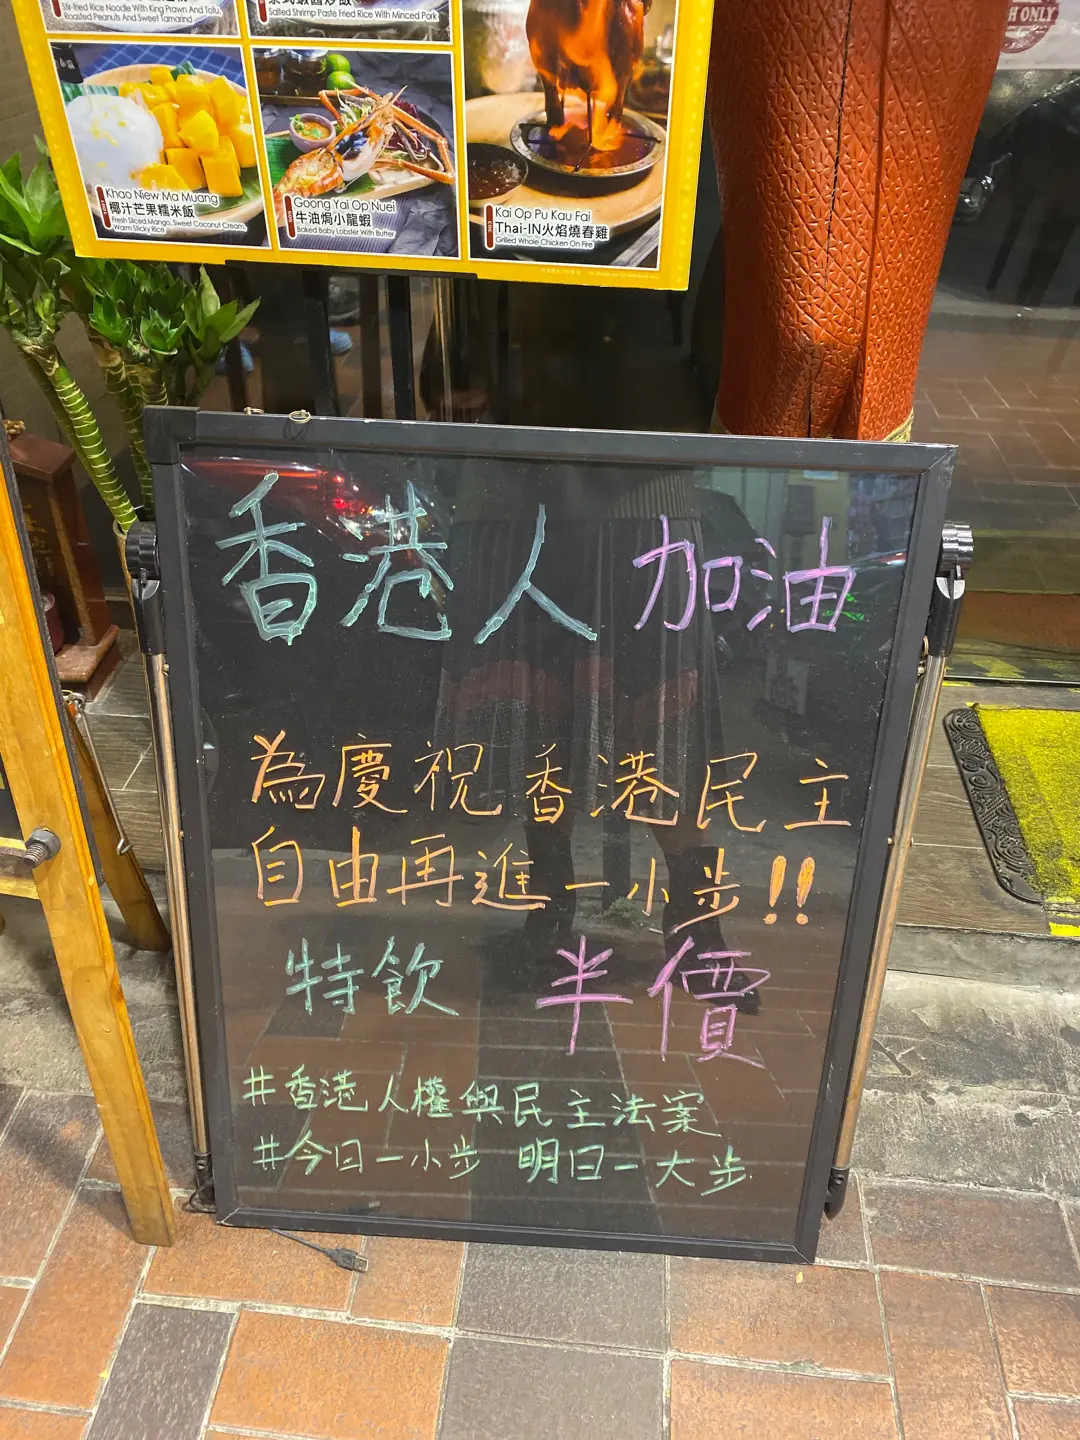 Stir-fried Rice Noodle With King Prawn And Tofu,
Roasted Peanuts And Sweet Tamarind
Salted Shrimp Paste Fried Rice With Minced Pork
Khao Niew Ma Muang
椰汁芒果糯米飯
Fresh Sliced Mango, Sweet Coconut Cream,
Warm Sticky Rice
Goong Yai Op Nuei
牛油焗小龍蝦
Baked Baby Lobster With Butter
Kai Op Pu Kau Fai
Thai-IN火焰燒春雞
Grilled Whole Chicken On Fire
H ONLY
香港人 加油
為慶祝香港民主
自由再進一小步!!
特飲 半價
#香港人權與民主法案
#今日一小步 明日一大步